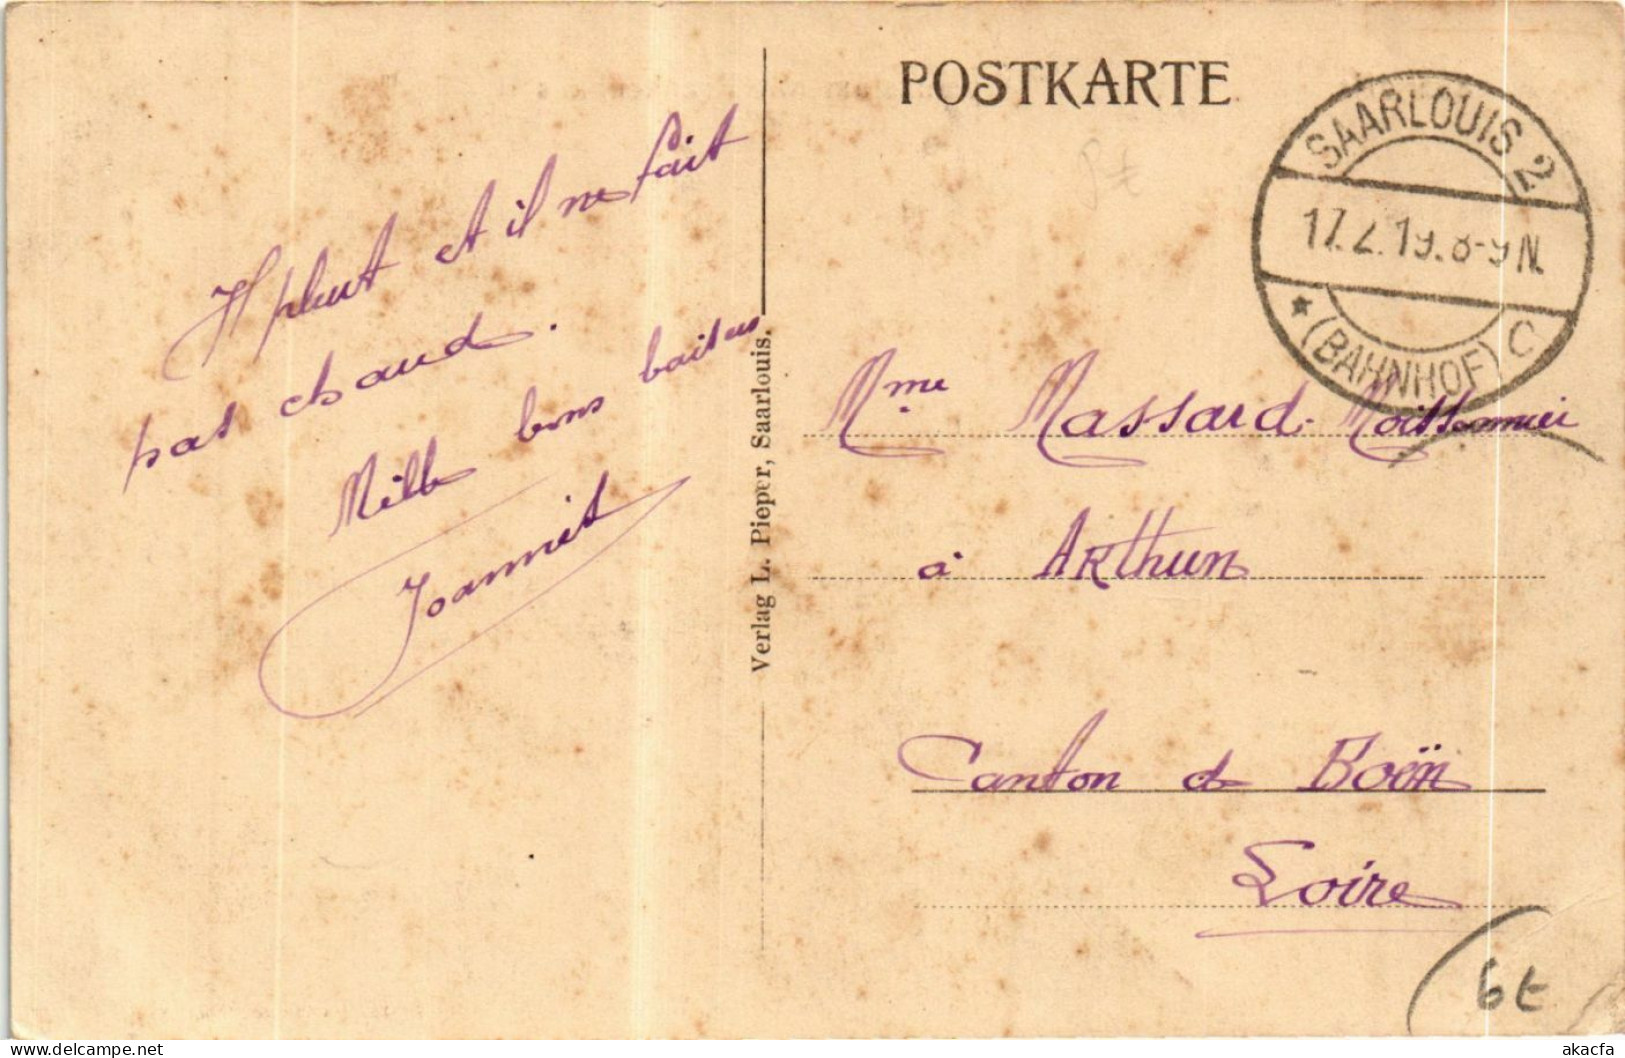 POSTKARTE
SAARLOUIS 2
17.2.19. 8-9 N.
* (BAHNHOF) C
Il pleut et il ne fait
pas chaud.
Mille bons baisers
Joannet
Verlag L. Pieper, Saarlouis.
Mme Massard-Moissonnier
à Arthun
Canton de Boën
Loire
6t
akacfa